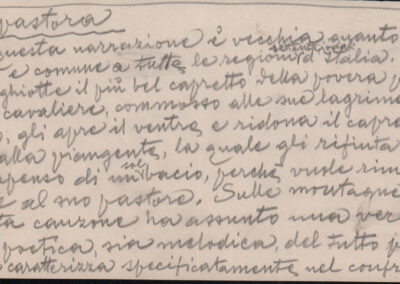 pastora
questa narrazione è vecchia quanto
e comune a tutte le regioni settentrionali d'Italia.
ghiotte il più bel capretto della povera p
cavaliere, commosso alle sue lagrime
, gli apre il ventre e ridona il capre
alla piangente, la quale gli rifiuta
penso di un sol bacio, perché vuole rim
e al suo pastore. Sulle montagne
ta canzone ha assunto una ver
poetica, sia melodica, del tutto p
caratterizza specificatamente nel confr